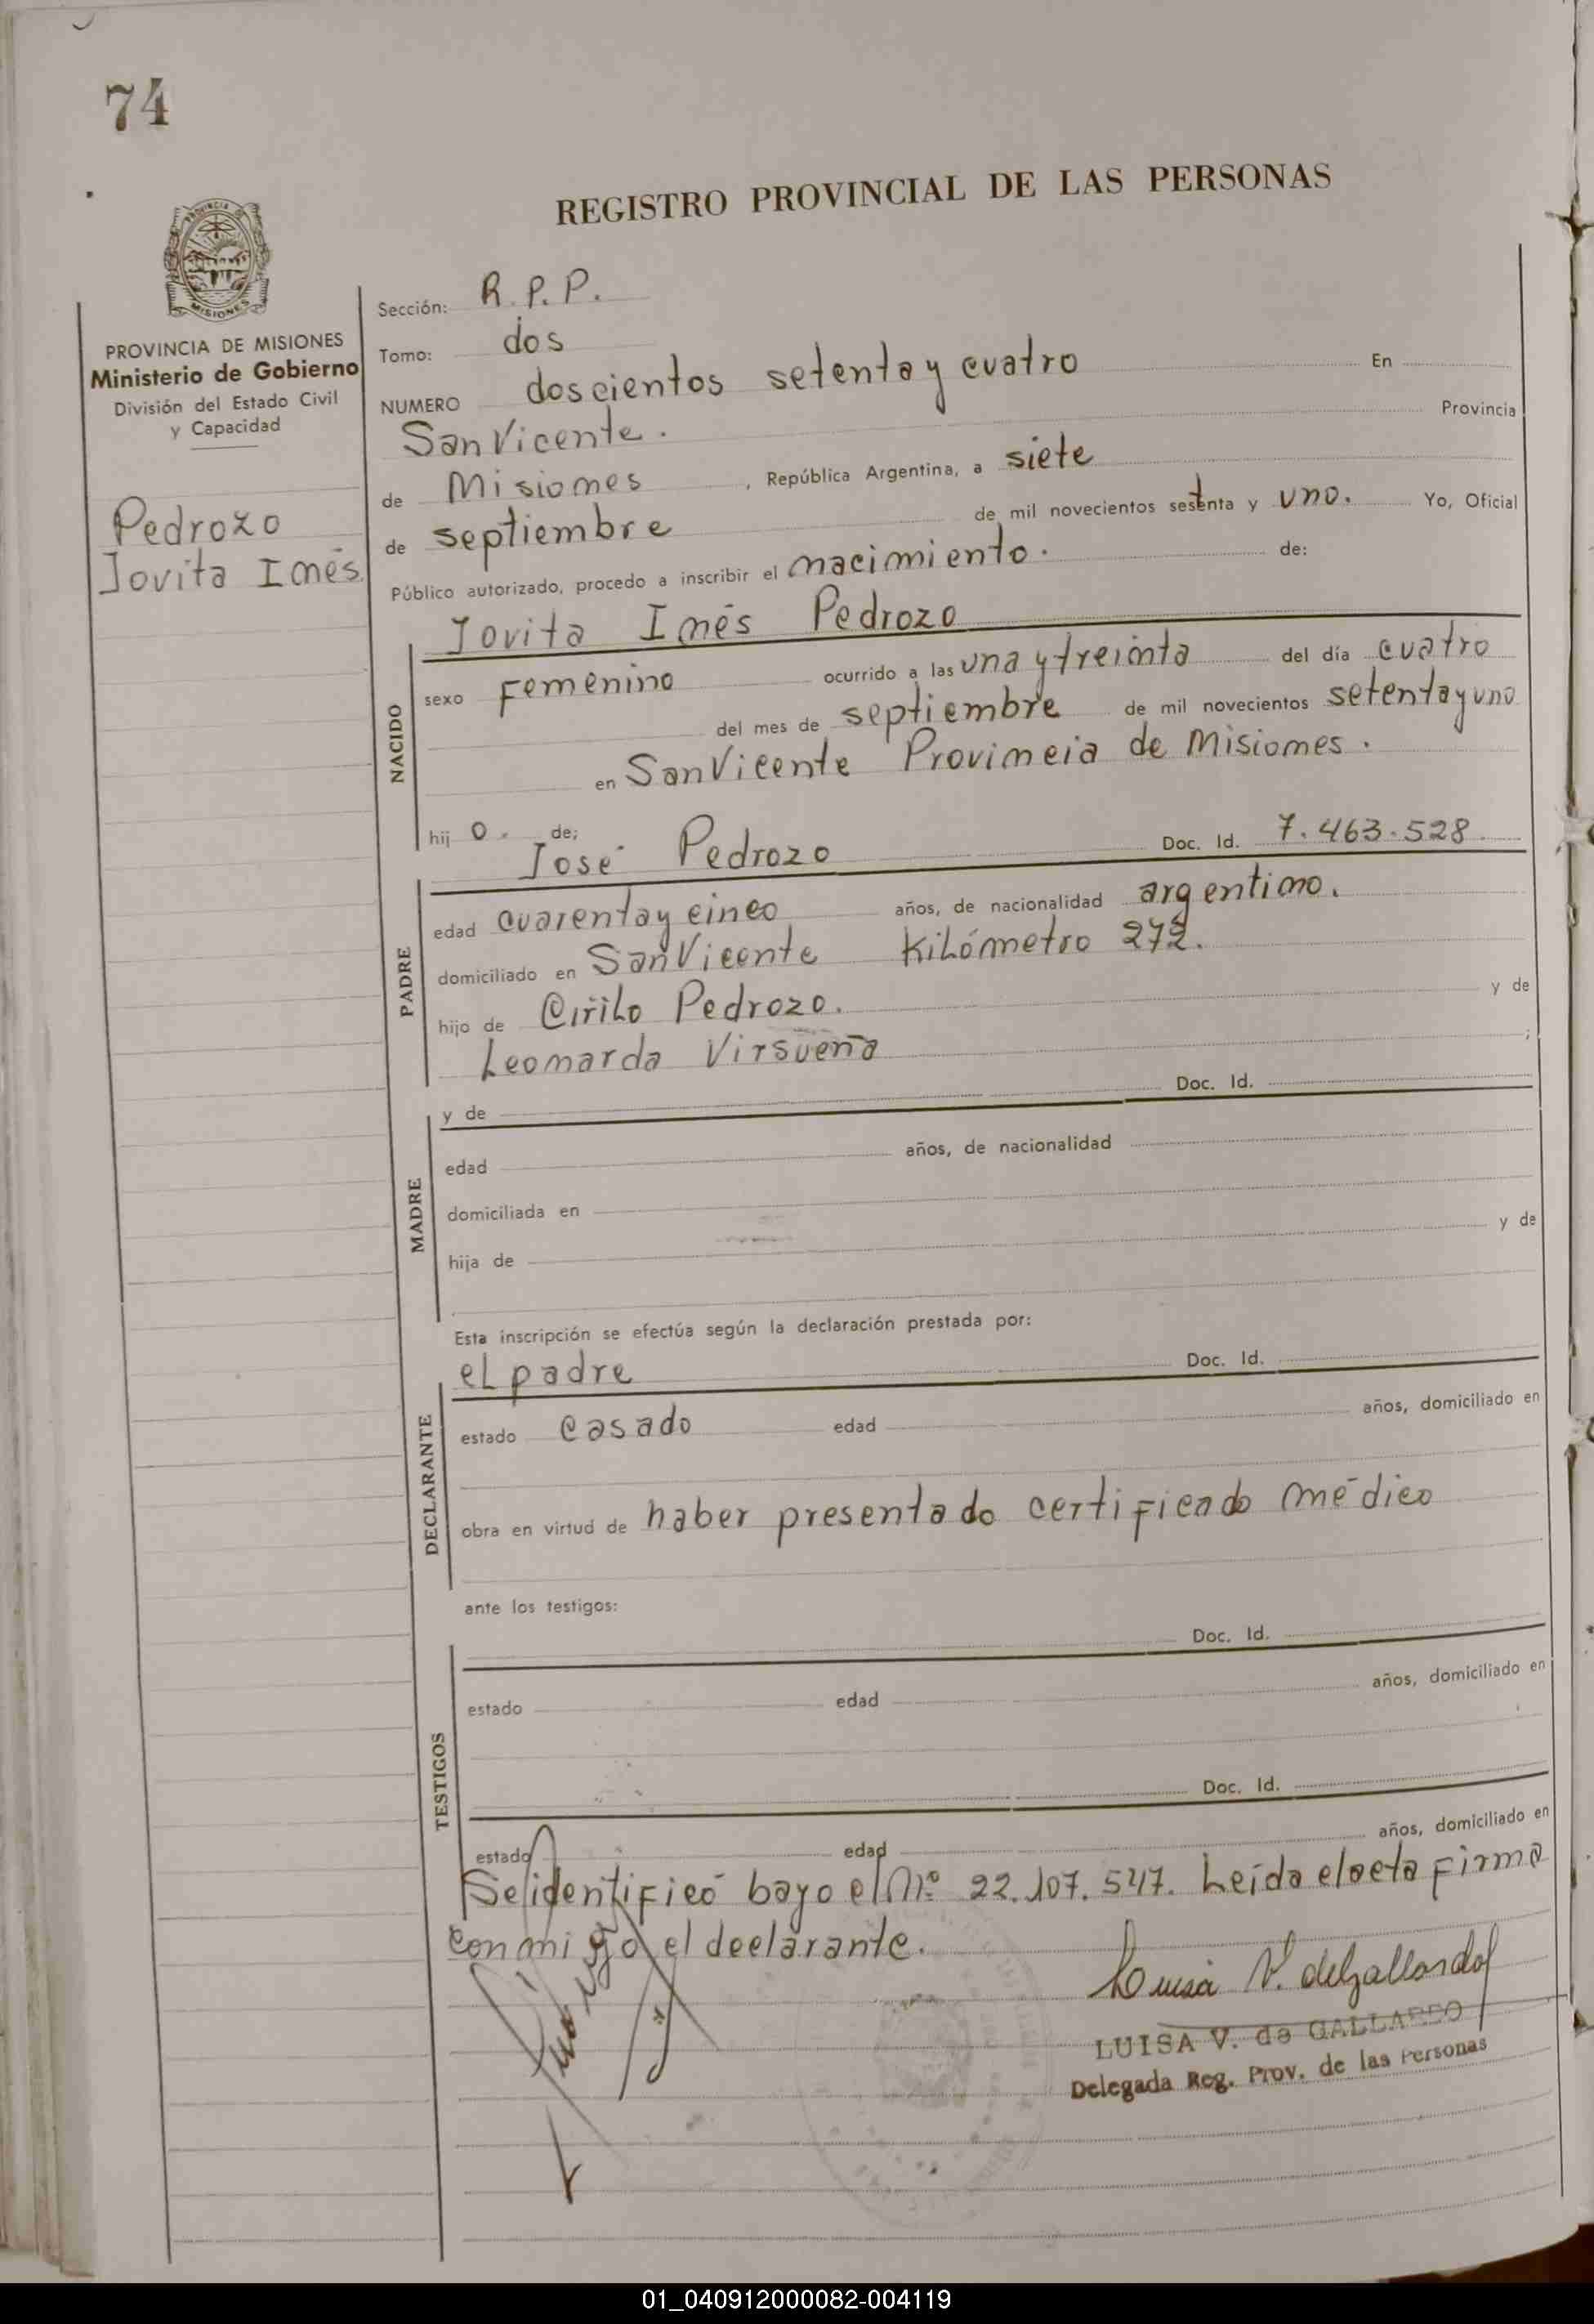 74
REGISTRO PROVINCIAL DE LAS PERSONAS
PROVINCIA DE MISIONES
Ministerio de Gobierno
División del Estado Civil
y Capacidad
Pedrozo
Jovita Inés
Sección: R.P.P.
Tomo: dos
NUMERO doscientos setenta y cuatro En
San Vicente. Provincia
de Misiones, República Argentina, a siete
de septiembre de mil novecientos setenta y uno. Yo, Oficial
Público autorizado, procedo a inscribir el nacimiento. de:
NACIDO
Jovita Inés Pedrozo
sexo Femenino ocurrido a las una y treinta del día cuatro
del mes de septiembre de mil novecientos setenta y uno
en San Vicente Provincia de Misiones.
hij o. de;
PADRE
José Pedrozo Doc. Id. 7.463.528
edad cuarenta y cinco años, de nacionalidad argentino.
domiciliado en San Vicente Kilómetro 272.
hijo de Cirilo Pedrozo. y de
Leonarda Virsueña ;
MADRE
y de Doc. Id.
edad años, de nacionalidad
domiciliada en
hija de y de
Esta inscripción se efectúa según la declaración prestada por:
DECLARANTE
el padre Doc. Id.
estado casado edad años, domiciliado en
obra en virtud de haber presentado certificado médico
ante los testigos:
TESTIGOS
Doc. Id.
estado edad años, domiciliado en
Doc. Id.
estado edad años, domiciliado en
Se identificó bayo el Nº 22.107.547. Leída el acta firma
conmigo el declarante.
Luisa V. de Gallardo
LUISA V. de GALLARDO
Delegada Reg. Prov. de las Personas
01_040912000082-004119